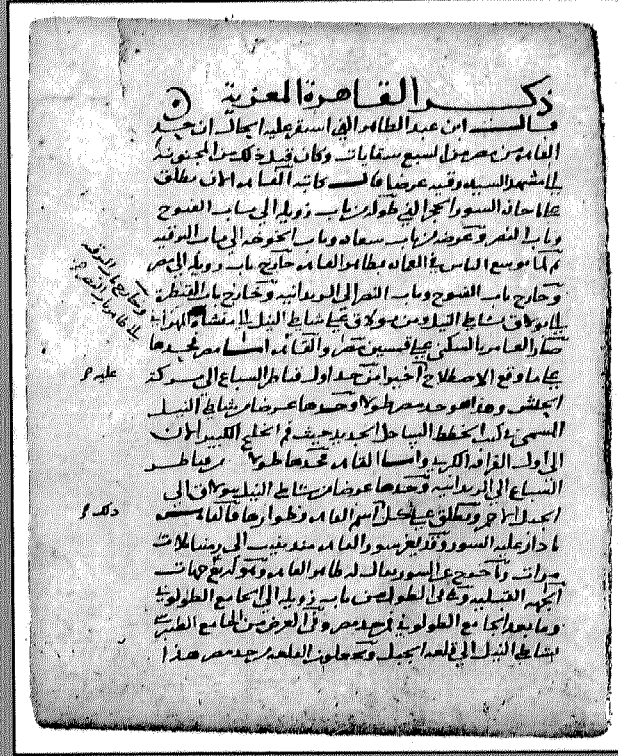 ذكر القاهرة المعزية
قال ابن عبد الظاهر الذي استقر عليه الحال ان حد
القاهره من مصر من السبع سقايات وكان قبل ذلك من المجنونة
الى مشهد السيده رقيه عرضا قال كاتبه القاهره الان تطلق
على ما حازه السور الحجر الذي طوله من باب زويله الى باب الفتوح
وباب النصر وعرضه من باب سعاده وباب الخوخه الى باب البرقيه
ثم لما توسع الناس في العماره بظاهر القاهره خارج باب زويله الى مصر
وخارج باب الفتوح وباب النصر الى الريدانيه وخارج باب القنطرة
الى بولاق بشاطي النيل ومن بولاق على شاطي النيل الى منشاة المهراني
صار العامر بالسكنى على قسمين مصر والقاهره اما مصر فحدها
على ما وقع الاصطلاح اخيرا من حد اول قناطر السباع الى بركة
الحبش وهذا هو حد مصر طولا وحدها عرضا من شاطي النيل
المسمى في كتب الخطط الساحل الجديد حيث فم الخليج الكبير الان
الى اول القرافه الكبرى واما القاهره فحدها طولا من قناطر
السباع الى الريدانيه وحدها عرضا من شاطي النيل ببولاق الى
الجبل الاحمر ويطلق على كل اسم القاهره وظواهرها فالقاهره
ما دار عليه السور
وما خرج عن السور يقال له ظاهر القاهره وهو اربع جهات
الجهه القبليه وهي في الطول من باب زويله الى الجامع الطولوني
وما بعد الجامع الطولوني من حد مصر وفي العرض من الجامع الطيبرسي
بشاطي النيل الى قلعه الجبل القلعه من حد مصر هذا
وخارج باب البرقيه
عليه
ذلك